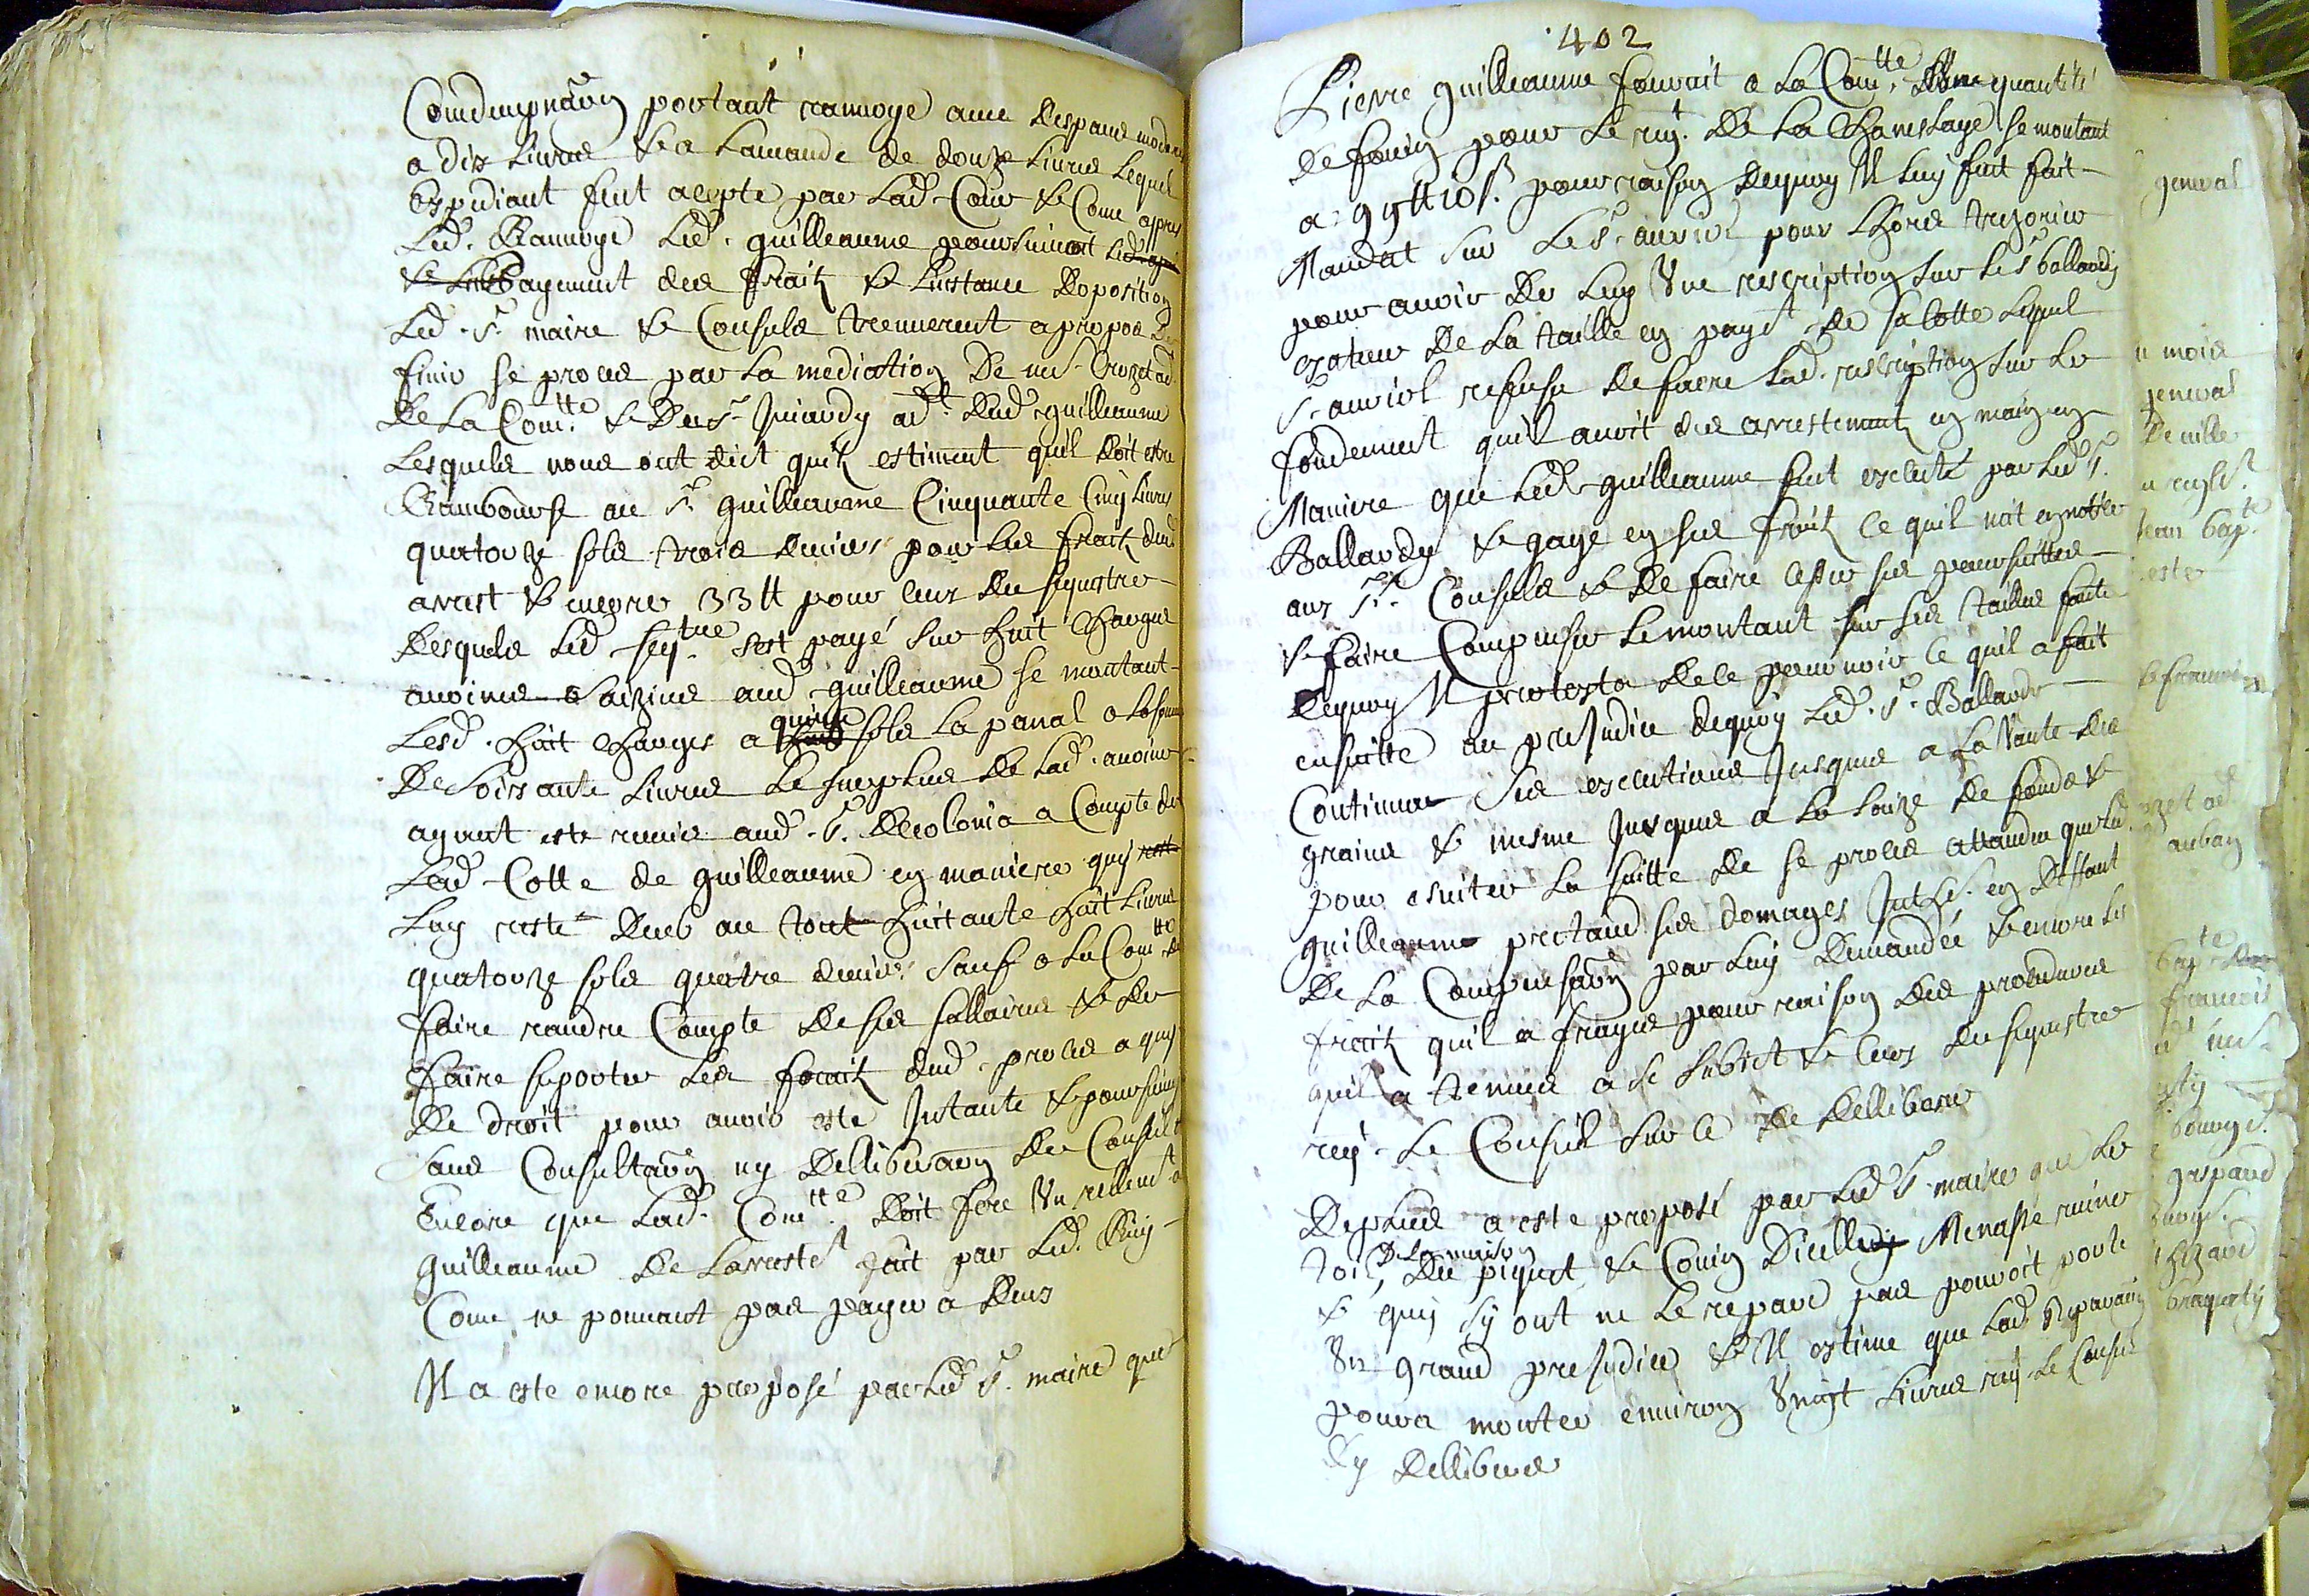 Condempnaõn portant ranvoye avec despans modere
a dix livres & a lamande de douze livres lequel
expediant fut acepte par lad. Cour & Come appres
led. Ranvoye led. guilleaume poursuivoit
payement des fraitz & linstance doposition
led. sr. maire & Consuls treuverent apropos de
finir se proces par la mediation de me. Crozet ad.
de la Com.tte & de me. Juiardy adt. dud. guilleaume
lesquels nous ont dict quilz estiment quil doit estre
Rambourse au sr. guilleaume Cinquante Cinq livres
quatorze sols trois deniers pour les fraitz dud.
arrest & encore 33 tt pour ceux du sequestre
desquels led. seq.tre sest payé sur huit charges
avoines saizines aud. guilleaume se montant
lesd. huit charges a quinze sols la panal a la somme
de soixante livres le surplus de lad. avoine
ayant este remis aud. sr. Decolonia a Compte de
lad. Cotte de guilleaume en maniere quy
luy reste deub au tout huitante huit livres
quatorze sols quatre deniers sauf a la Com.tte de
faire randre Compte de ses sallaires & de
faire suporter les fraitz dud. proces a quy
de droit pour avoir este Intante & poursuivy
sans Consultaõn ny delliberaõn du Conseil
Encore que lad. Com.tte doit fere un
guilleaume de larrestet. fait par led. Ruy
Come ne pouvant pas payer a deux
Il a este encore proposé par led. sr. maire que
402
Pierre guilleaume fournit a la Com.tte une quantité
de foing pour le regt. de la se montant
a 99 tt 10 s. pour raison dequoy Il luy fut fait
Mandat sur le sr. auriol pour lhors trezorier
pour avoir de luy une rescription sur le sr. ballardy
exateur de la taille en payt. de sa cotte lequel
sr. auriol refusa de faire lad. rescription sur le
fondement quil avoit des arrestementz en main en
Maniere que led. guilleaume fut execute par led. sr.
Ballardy & gage en ses fruitz ce quil mit en notice
aux srs. Consuls & de faire cesser ses poursuittes
& faire Compenser le montant sur ses tailles faute
dequoy Il protesta de ce pourvoir ce quil a fait
ensuitte au presjudice dequoy led. sr. Ballardy
Continua ses executions Jusques a la vante des
grains & mesme Jusques a la saizie de fonds &
pour esviter la suitte de se proces attandu que led.
guilleaume pretand ses domages Intts. en deffaut
de la Compensaõn par luy demandée & encore les
fraitz quil a frayes pour raison des procedures
quil a tenues a se subiet & ceux du sequestre
reqt. le Conseil sur ce de delliberer
Deplus a este proposé par led. sr. maire que le
toit de la maison du piquet & Couin Dicelluy Menasse ruine
& quy sy ont ne le repare pas pouvoit porte
Un grand presjudice & Il estime que lad. Reparaõn
pourra monter environ Vingt livres reqt. le Conseil
dy delliberer
general
n mois
general
De ville
Jean bap.te
este
& francois
ozet ad.
auban
bap.te
francois
bourge
gaspard